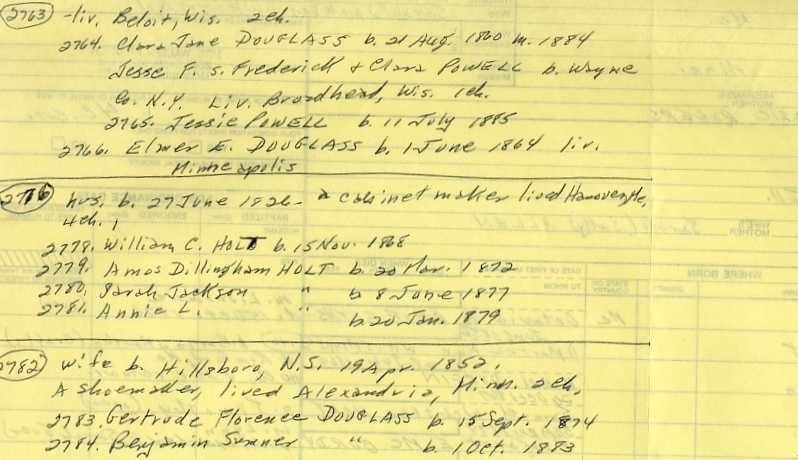 2763 -liv. Beloit, Wis. 2ch.
2764. Clara Jane DOUGLASS b. 21 Aug. 1860 m. 1884
Jesse F. s. Frederick + Clara POWELL b. Wayne
Co. N.Y. Liv. Broadhead, Wis. 1ch.
2765. Jessie POWELL b. 11 July 1885
2766. Elmer E. DOUGLASS b. 1 June 1864 liv.
Minneapolis
hus. b. 27 June 1826- a cabinet maker lived Hanover, Me,
4ch.
2778. William C. HOLT b. 15 Nov. 1868
2779. Amos Dillingham HOLT b 20 Mar. 1872
2780. Sarah Jackson " b 8 June 1877
2781. Annie L. " b 20 Jan. 1879
2782 wife b. Hillsboro, N.S. 19 Apr. 1852.
A shoemaker, lived Alexandria, Minn. 2ch.
2783. Gertrude Florence DOUGLASS b. 15 Sept. 1874
2784. Benjamin Sumner " b. 1 Oct. 1883